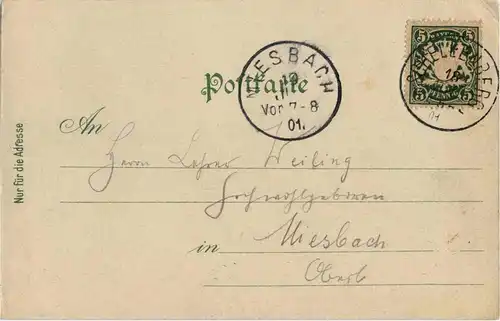 5 5
BAYERN
5 5
PFENNIG
MIESBACH
19
Vor. 7-8
01.
Postkarte
An
Herrn Lehrer Weiling
Hochwohlgeboren
in Miesbach
Oberb
Nur für die Adresse